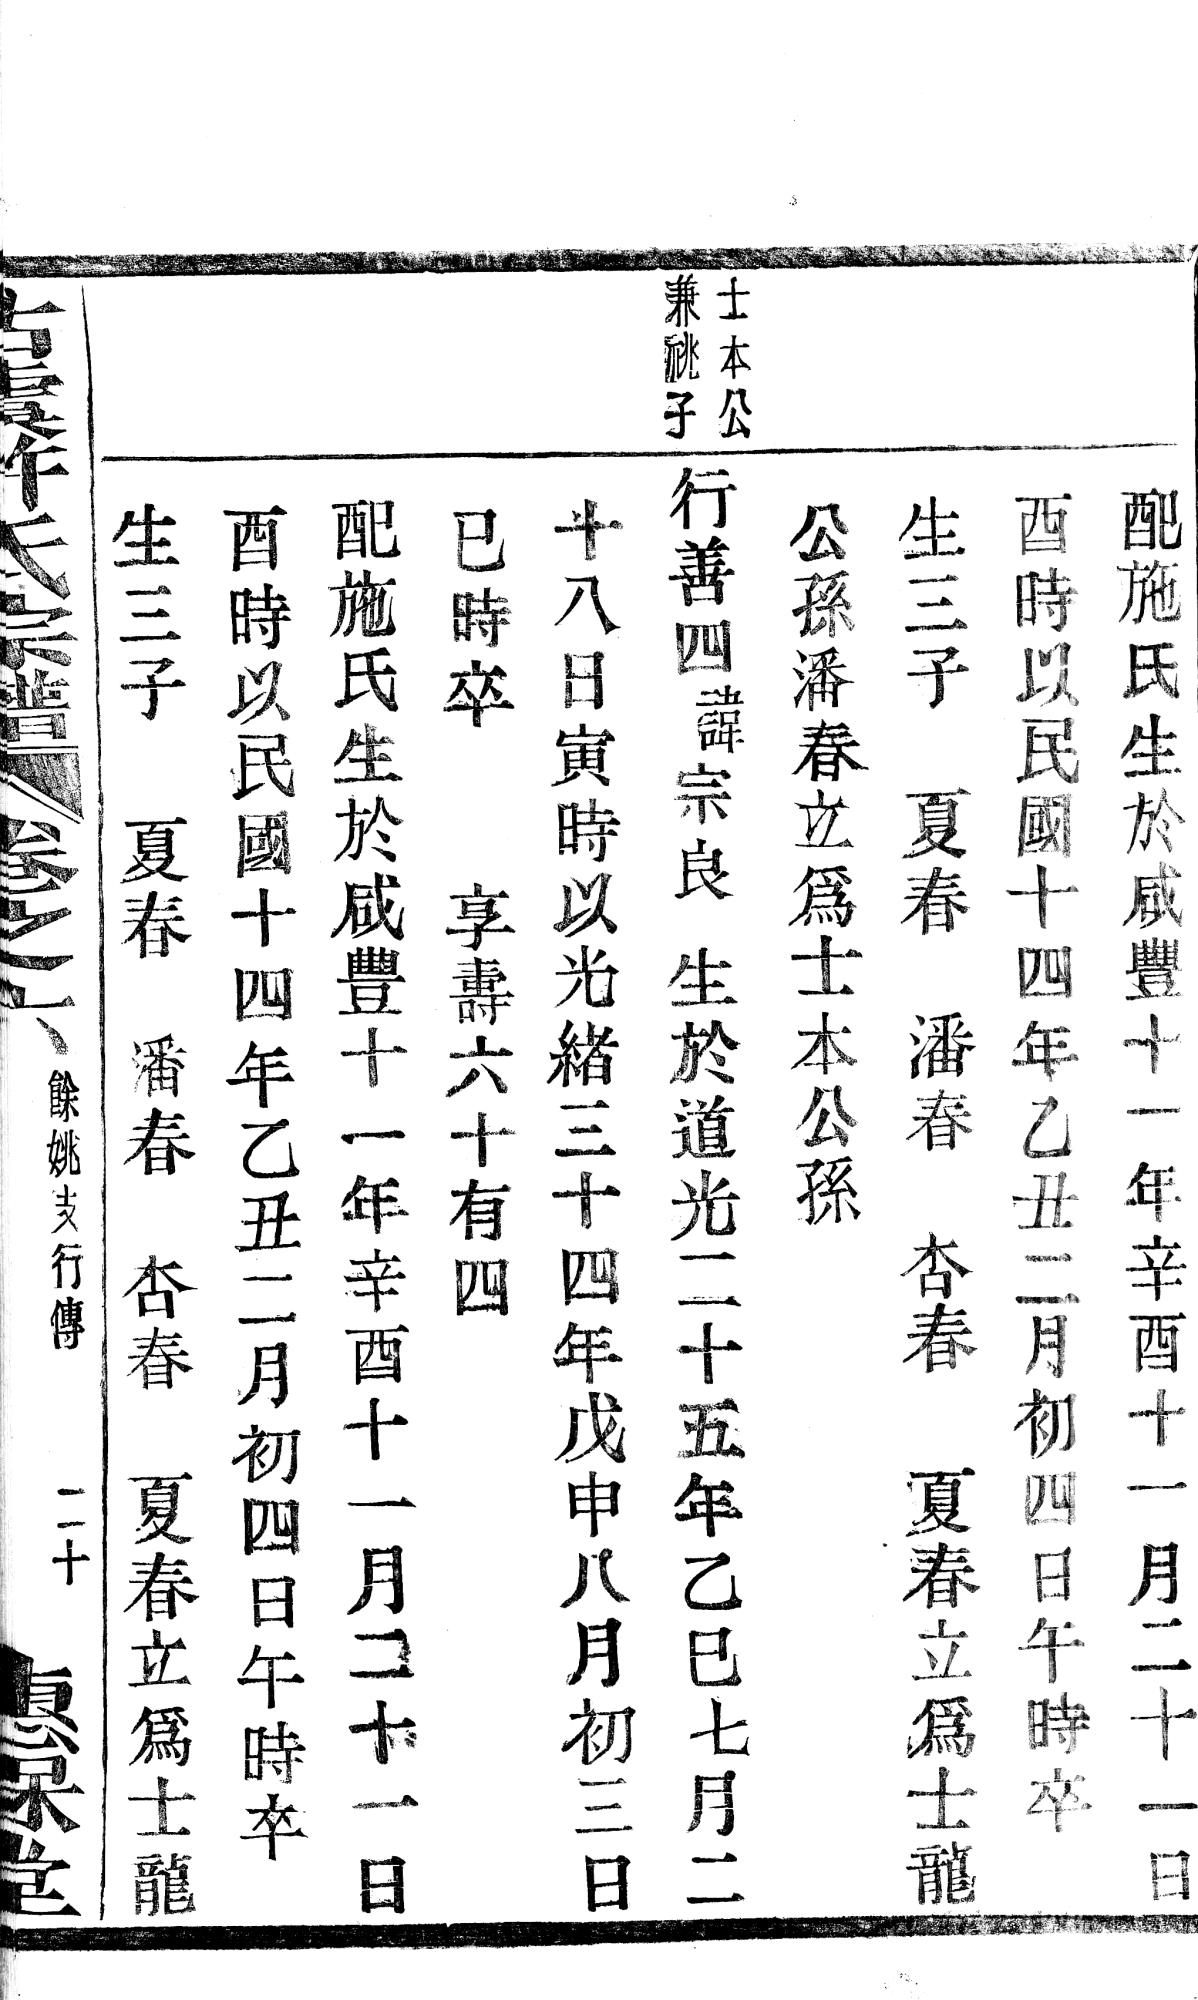 配施氏生於咸豐十一年辛酉十一月二十一日
酉時以民國十四年乙丑二月初四日午時卒
生三子　夏春　潘春　杏春　夏春立爲士龍
公孫潘春立爲士本公孫
士本公
兼祧子
行善四諱宗良　生於道光二十五年乙巳七月二
十八日寅時以光緒三十四年戊申八月初三日
巳時卒　　享壽六十有四
配施氏生於咸豐十一年辛酉十一月二十一日
酉時以民國十四年乙丑二月初四日午時卒
生三子　夏春　潘春　杏春　夏春立爲士龍
氏宗譜　卷之六　餘姚支行傳　二十　惠保堂